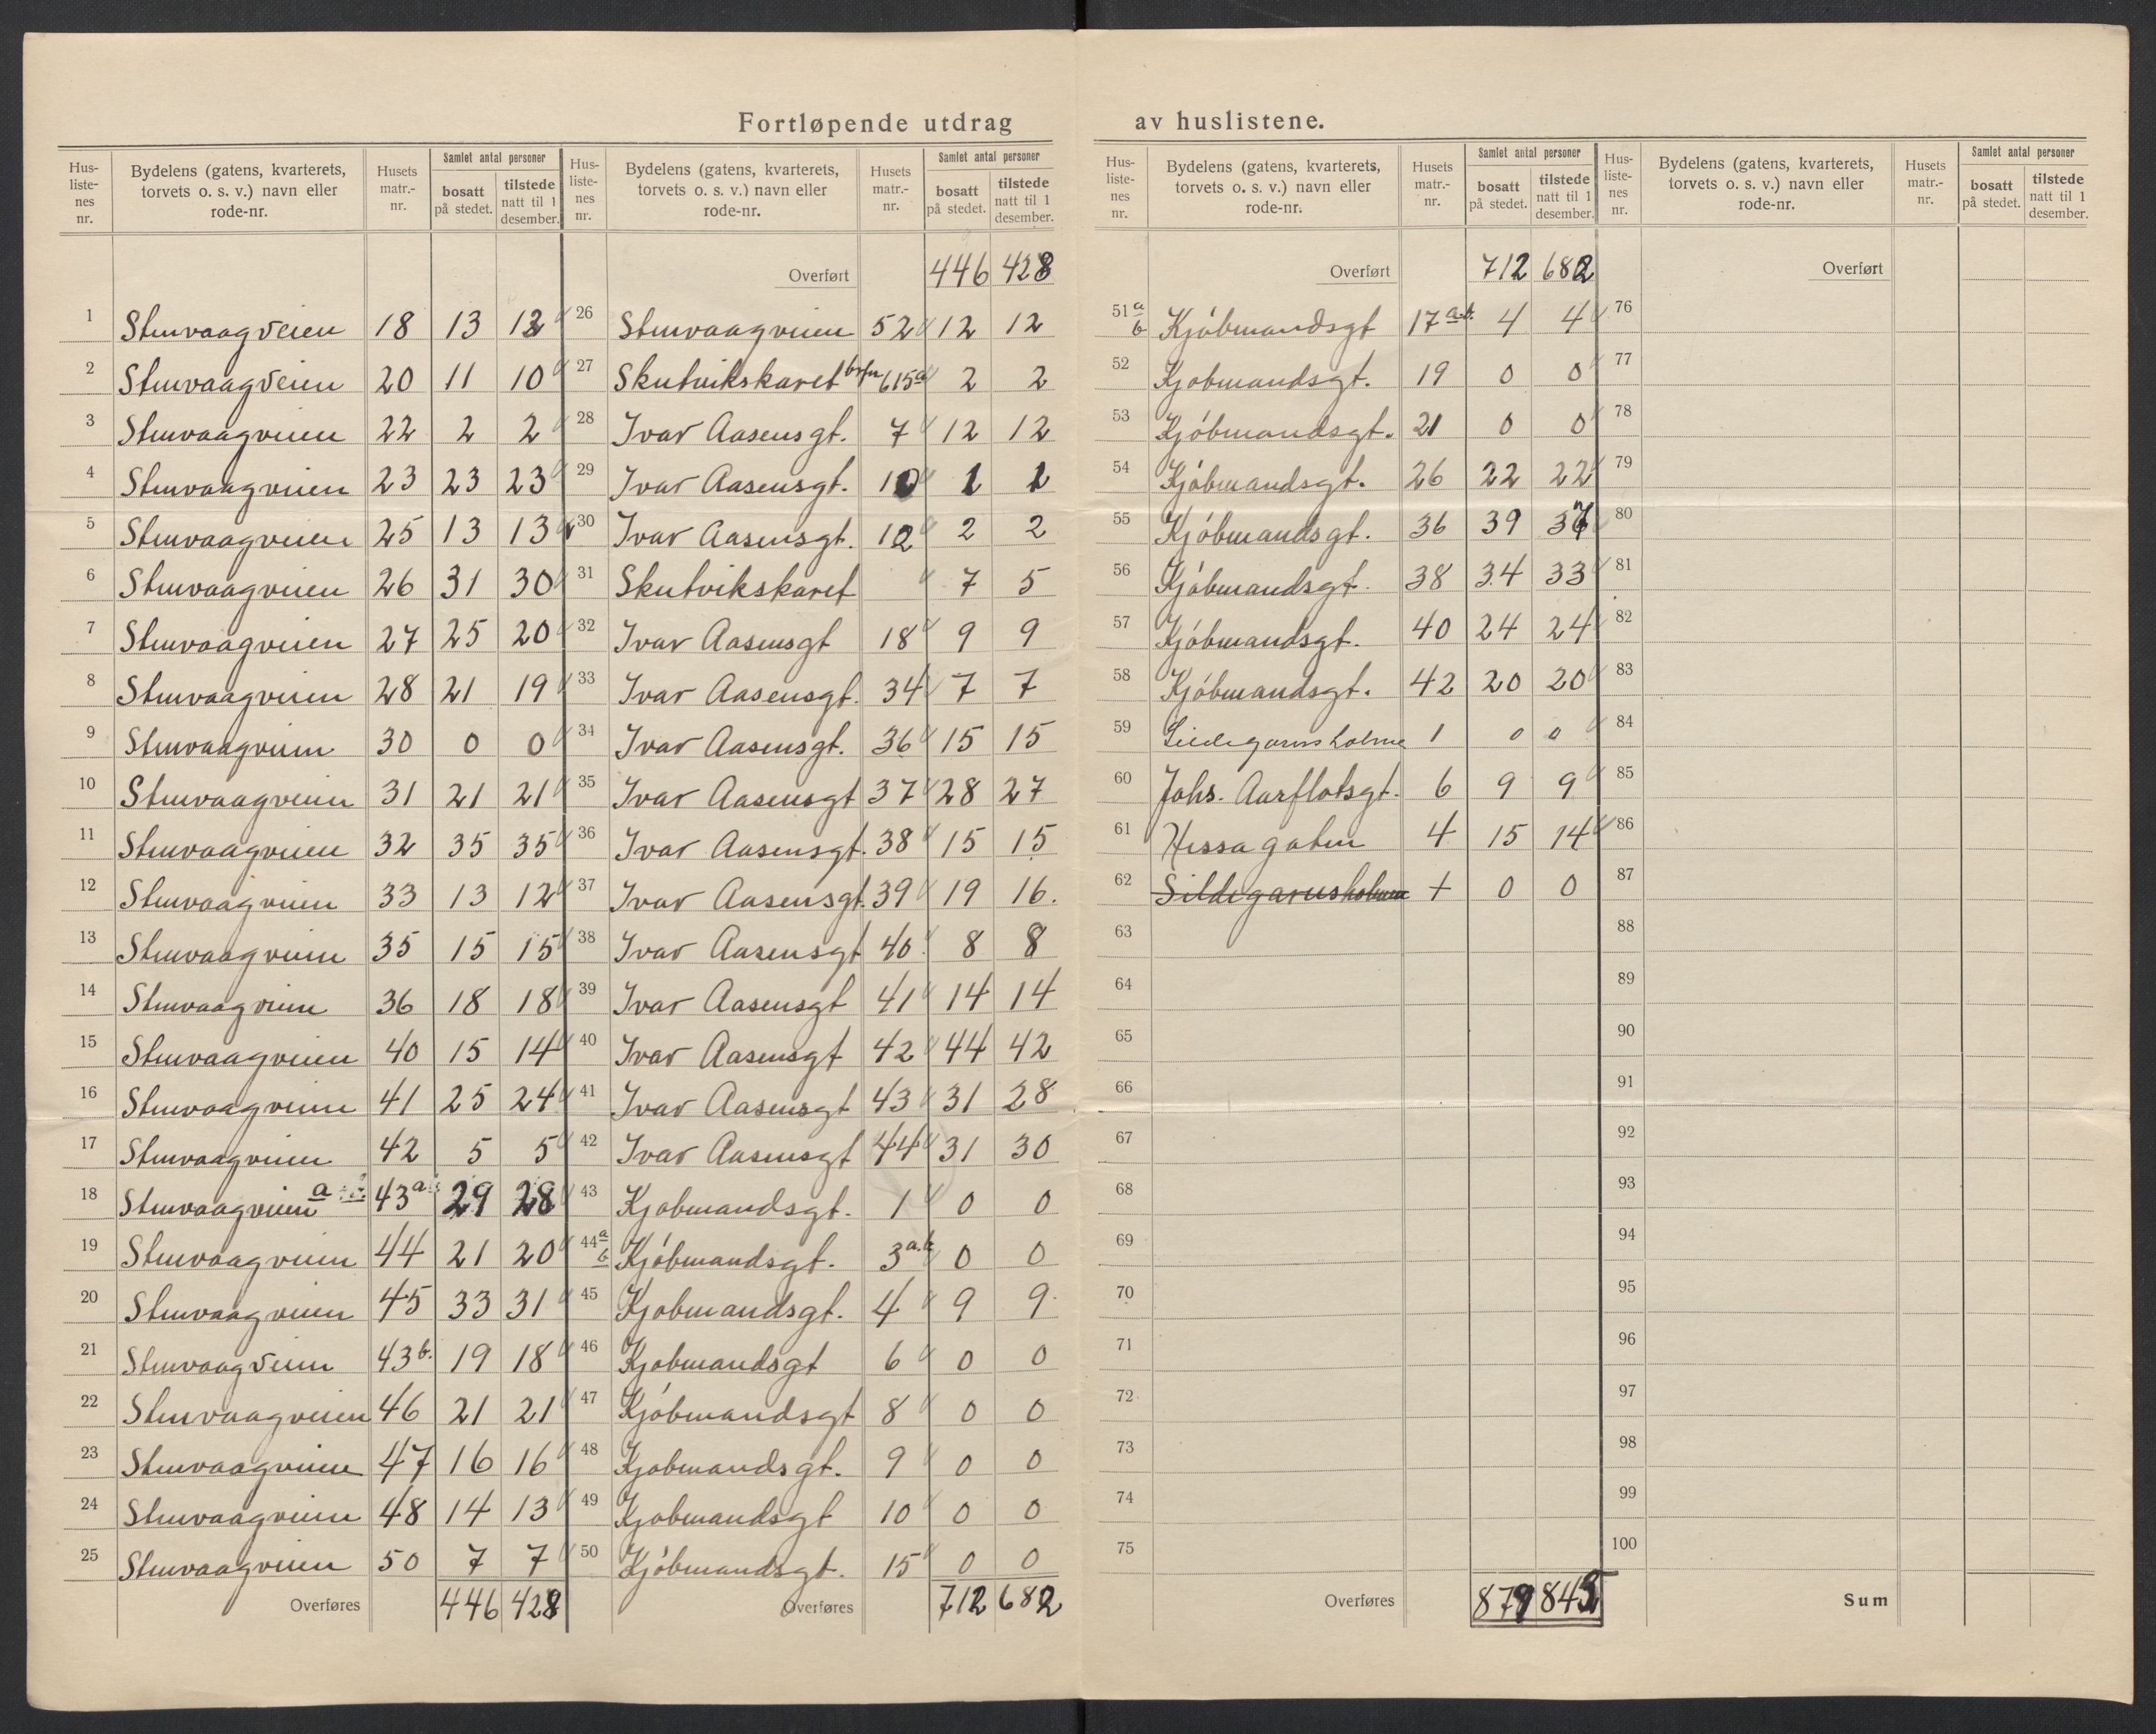 Fortløpende utdrag av huslistene.
Hus-liste-nes nr. | Bydelens (gatens, kvarterets, torvets o. s. v.) navn eller rode-nr. | Husets matr.-nr. | Samlet antal personer bosatt på stedet. | tilstede natt til 1 desember.
1 Stenvaagveien 18 13 12
2 Stenvaagveien 20 11 10
3 Stenvaagveien 22 2 2
4 Stenvaagveien 23 23 23
5 Stenvaagveien 25 13 13
6 Stenvaagveien 26 31 30
7 Stenvaagveien 27 25 20
8 Stenvaagveien 28 21 19
9 Stenvaagveien 30 0 0
10 Stenvaagveien 31 21 21
11 Stenvaagveien 32 35 35
12 Stenvaagveien 33 13 12
13 Stenvaagveien 35 15 15
14 Stenvaagveien 36 18 18
15 Stenvaagveien 40 15 14
16 Stenvaagveien 41 25 24
17 Stenvaagveien 42 5 5
18 Stenvaagveien a 43a 29 28
19 Stenvaagveien 44 21 20
20 Stenvaagveien 45 33 31
21 Stenvaagveien 43b. 19 18
22 Stenvaagveien 46 21 21
23 Stenvaagveien 47 16 16
24 Stenvaagveien 48 14 13
25 Stenvaagveien 50 7 7
Overføres 446 428
Hus-liste-nes nr. | Bydelens (gatens, kvarterets, torvets o. s. v.) navn eller rode-nr. | Husets matr.-nr. | Samlet antal personer bosatt på stedet. | tilstede natt til 1 desember.
Overført 446 428
26 Stenvaagveien 52 12 12
27 Skutvikskaret 615a 2 2
28 Ivar Aasensgt. 7 12 12
29 Ivar Aasensgt. 10 1 1
30 Ivar Aasensgt. 12 2 2
31 Skutvikskaret 7 5
32 Ivar Aasensgt 18 9 9
33 Ivar Aasensgt. 34 7 7
34 Ivar Aasensgt. 36 15 15
35 Ivar Aasensgt 37 28 27
36 Ivar Aasensgt. 38 15 15
37 Ivar Aasensgt. 39 19 16.
38 Ivar Aasensgt 40 8 8
39 Ivar Aasensgt 41 14 14
40 Ivar Aasensgt 42 44 42
41 Ivar Aasensgt 43 31 28
42 Ivar Aasensgt 44 31 30
43 Kjøbmandsgt. 1 0 0
44 a b Kjøbmandsgt. 3a.b 0 0
45 Kjøbmandsgt. 4 9 9
46 Kjøbmandsgt 6 0 0
47 Kjøbmandsgt 8 0 0
48 Kjøbmandsgt. 9 0 0
49 Kjøbmandsgt 10 0 0
50 Kjøbmandsgt. 15 0 0
Overføres 712 682
Hus-liste-nes nr. | Bydelens (gatens, kvarterets, torvets o. s. v.) navn eller rode-nr. | Husets matr.-nr. | Samlet antal personer bosatt på stedet. | tilstede natt til 1 desember.
Overført 712 682
51 a b Kjøbmandsgt 17a.b. 4 4
52 Kjøbmandsgt. 19 0 0
53 Kjøbmandsgt. 21 0 0
54 Kjøbmandsgt. 26 22 22
55 Kjøbmandsgt. 36 39 37
56 Kjøbmandsgt. 38 34 33
57 Kjøbmandsgt. 40 24 24
58 Kjøbmandsgt. 42 20 20
59 1 0 0
60 Johs. Aarflotsgt. 6 9 9
61 Hessagaten 4 15 14
62 Sildegarnsholmen + 0 0
63
64
65
66
67
68
69
70
71
72
73
74
75
Overføres 879 845
Hus-liste-nes nr. | Bydelens (gatens, kvarterets, torvets o. s. v.) navn eller rode-nr. | Husets matr.-nr. | Samlet antal personer bosatt på stedet. | tilstede natt til 1 desember.
Overført
76
77
78
79
80
81
82
83
84
85
86
87
88
89
90
91
92
93
94
95
96
97
98
99
100
Sum